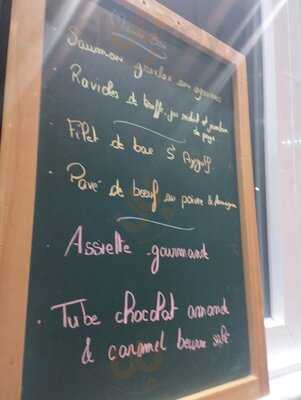 Saumon gravlax en agrumes
Ravioles de truffe, jus réduit et jambon
de pays
Filet de bar St
Pavé de bœuf au poivre &
Assiette gourmande
Tube chocolat amande
& caramel beurre salé